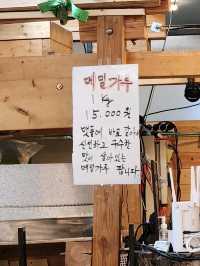 메밀가루
1 kg
15.000원
맷돌에 바로 갈아
신선하고 구수한
맛이 살아있는
메밀가루 팝니다